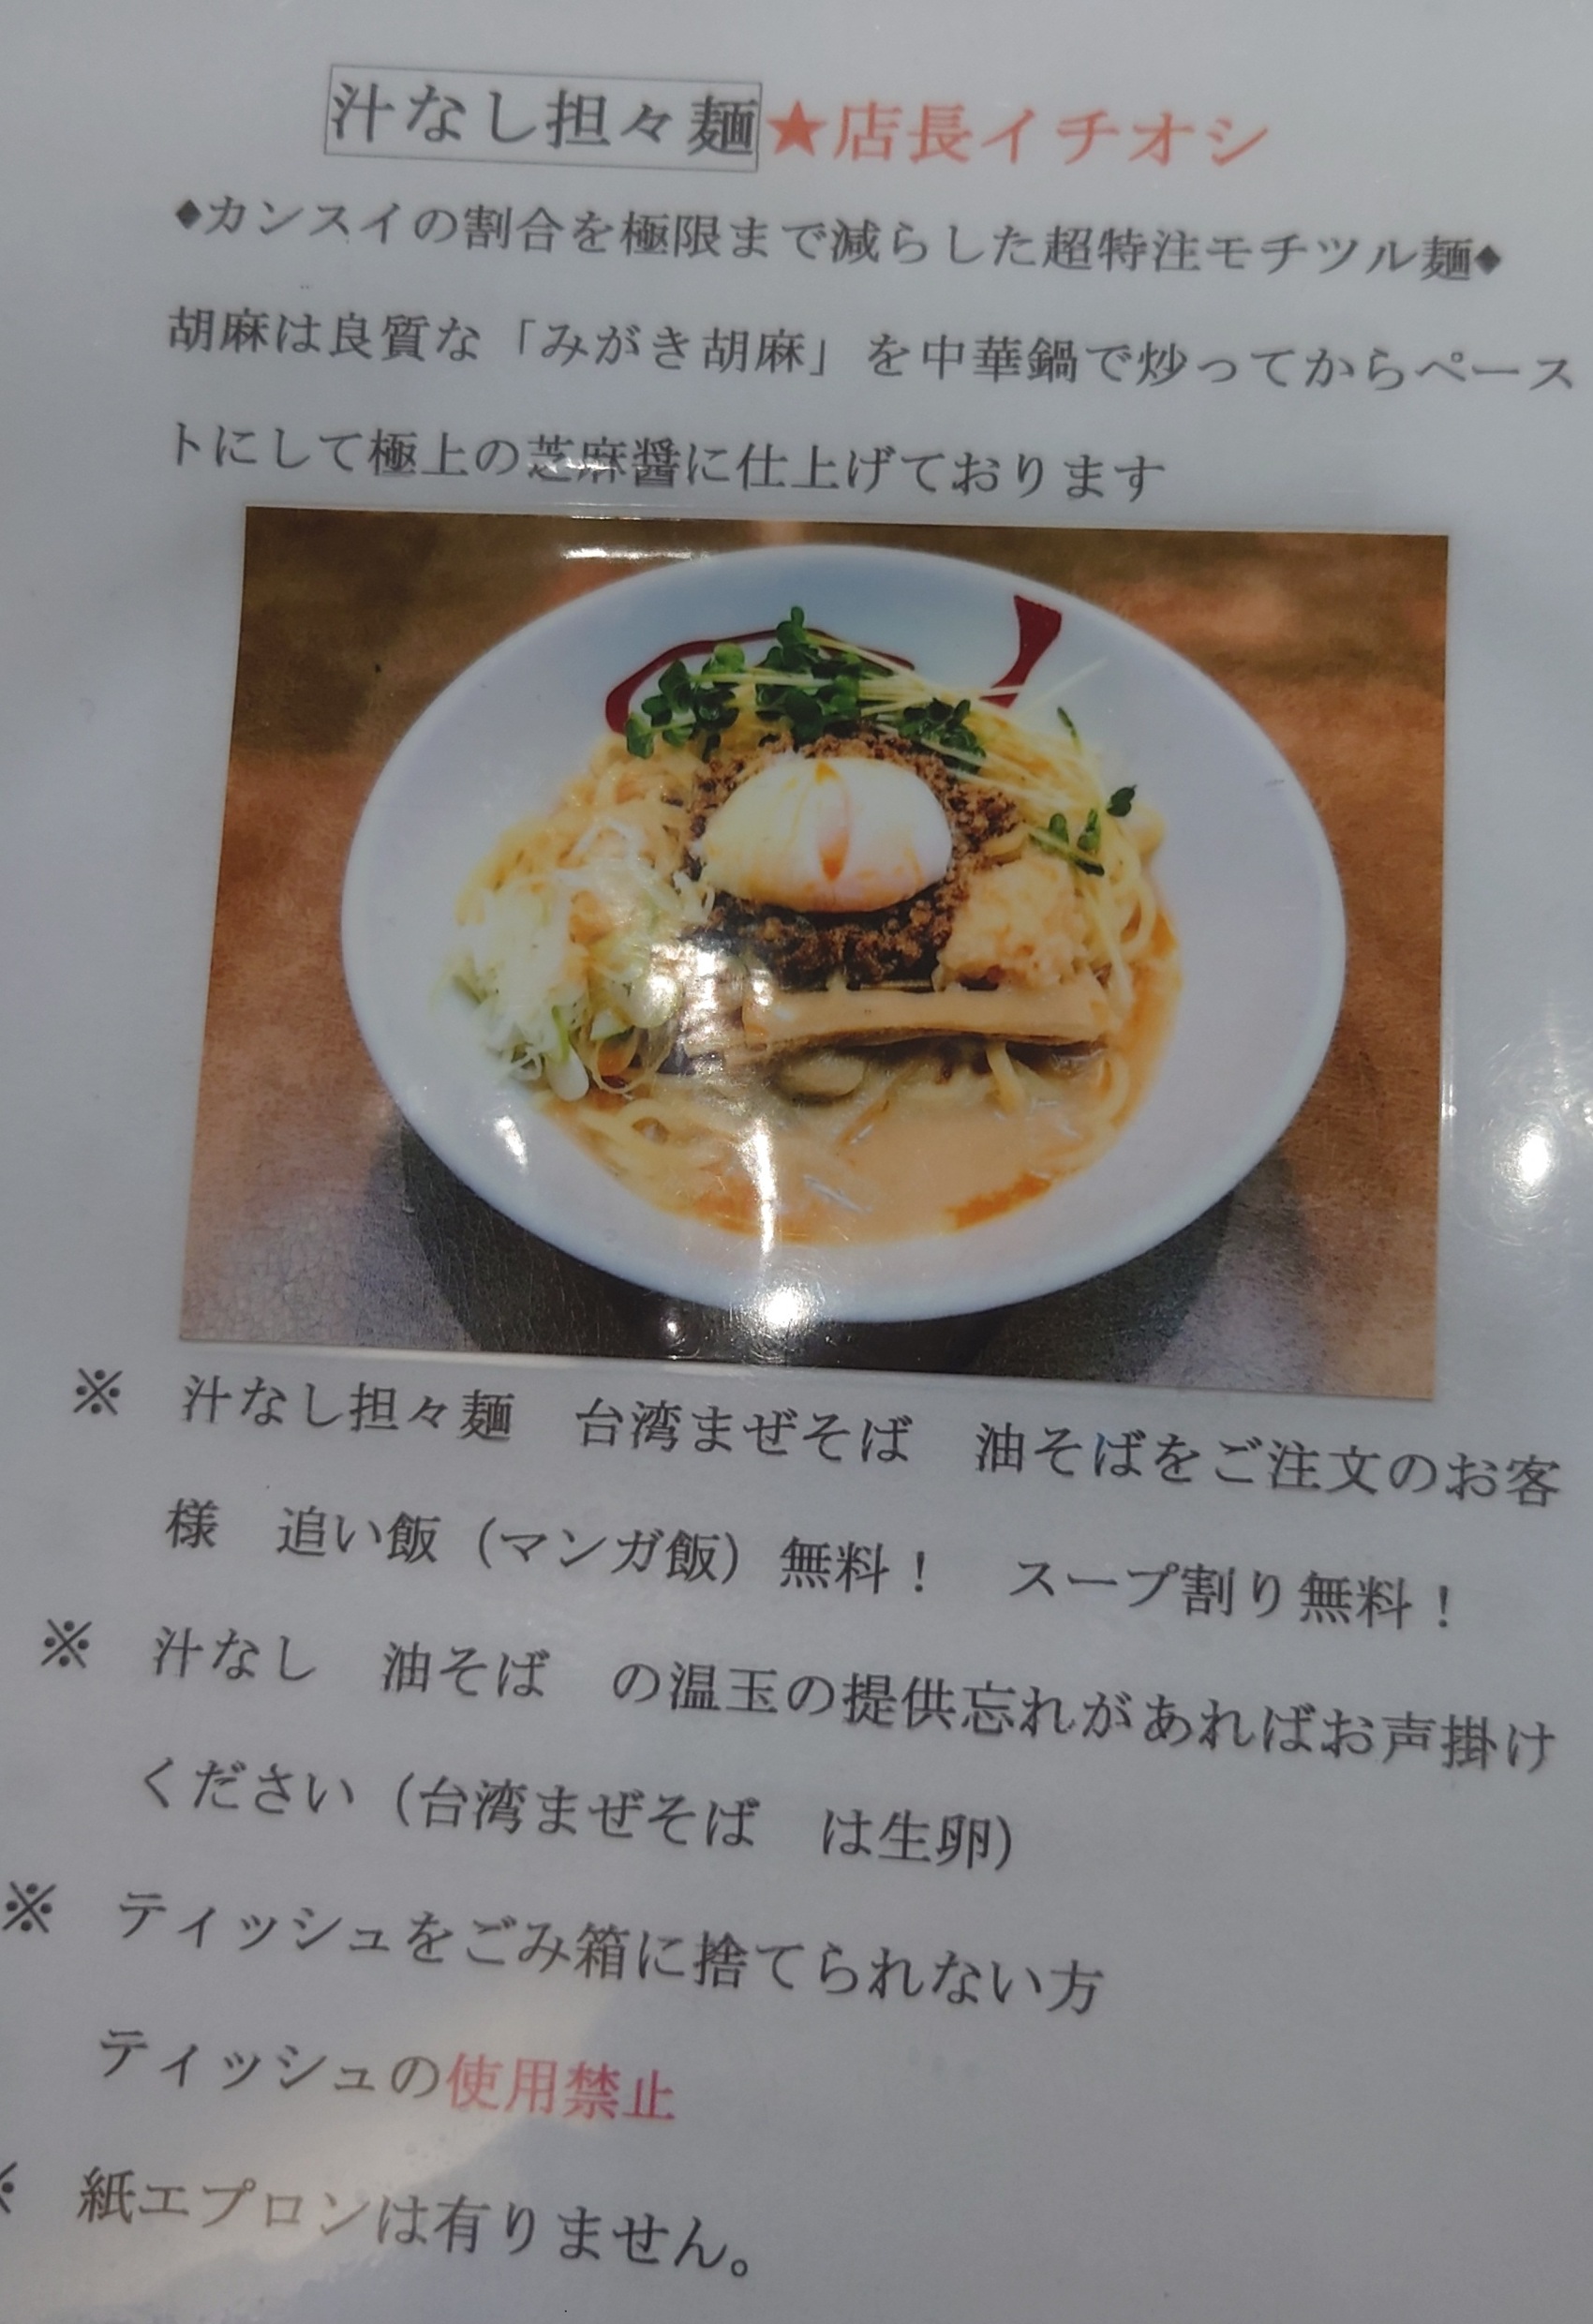 汁なし担々麺★店長イチオシ
◆カンスイの割合を極限まで減らした超特注モチツル麺◆
胡麻は良質な「みがき胡麻」を中華鍋で炒ってからペース
トにして極上の芝麻醤に仕上げております
※　汁なし担々麺　台湾まぜそば　油そばをご注文のお客
様　追い飯（マンガ飯）無料！　スープ割り無料！
※　汁なし　油そば　の温玉の提供忘れがあればお声掛け
ください（台湾まぜそば　は生卵）
※　ティッシュをごみ箱に捨てられない方
ティッシュの使用禁止
※　紙エプロンは有りません。